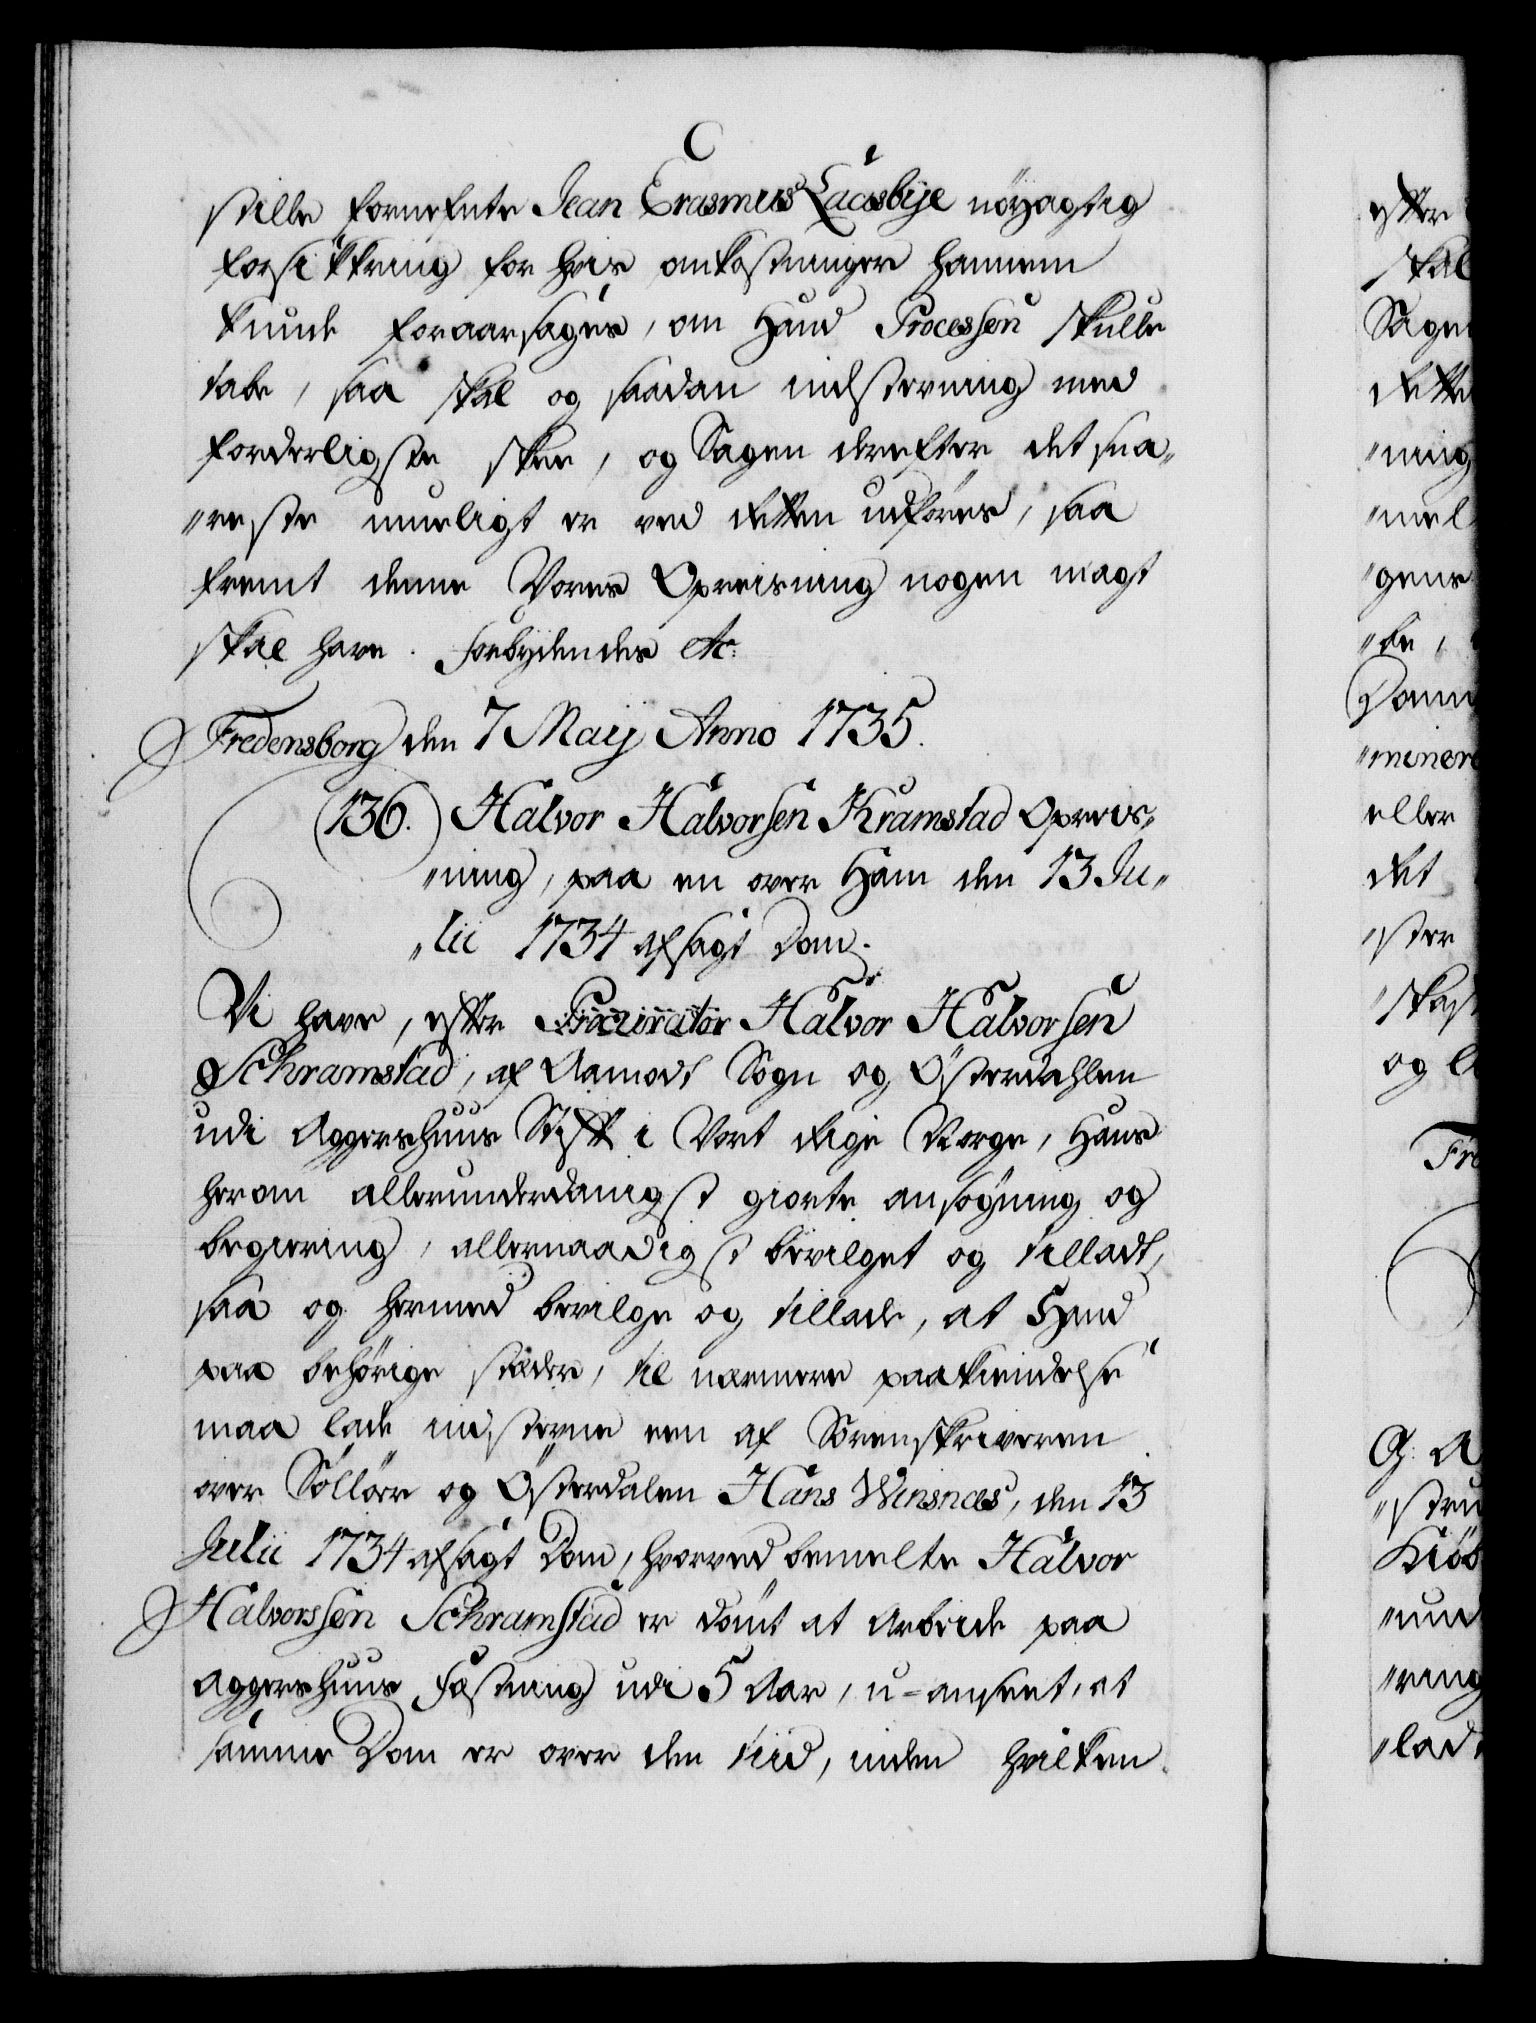 stille fornefnte Jean Erasmus Lacsbye nöÿagtig
forsikkring for hvis omkostninger hannem
kunde foraarsages, om hand Processen skulle
tabe, saa skal og saadan indstevning med
forderligste skee, og Sagen derefter det sna„
„reste mueligt er ved Retten udföres, saa
fremt denne Vores Opreisning nogen magt
skal have. Forbydendes etc.
Fredensborg den 7 Maij Anno 1735.
(136.) Halvor Halvorsen Kramstad Opreis„
„ning, paa en over Ham den 13 Ju„
„lii 1734 afsagt Dom.
Vi have, efter Procurator Halvor Halvorsen
Schramstad, af Aamodt Sogn og Österdahlen
udi Aggershuus Stift i Vort Rige Norge, Hans
herom allerunderdanigst giorte ansögning og
begiering, allernaadigst bevilget og tilladt,
saa og hermed bevilge og tillade, at Hand
paa behörige stæder, til nærmere paakiendelse
maa lade indstevne een af Sorenskriveren
over Sollöer og Österdalen Hans Winsnæs, den 13
Julii 1734 afsagt Dom, hvorved bemelte Halvor
Halvorssen Schramstad er dömt at Arbeide paa
Aggershuus Fæstning udi 5 Aar, u-anseet, at
samme Dom er over den tiid, inden hvilken
efter
skal
Sage
Rette
„ning
„mel
„gens
„be,
Dom
„minere
eller
det
„ster
„skaf
og
Fre
„stru
Kiöb
„und
„ring
„lad